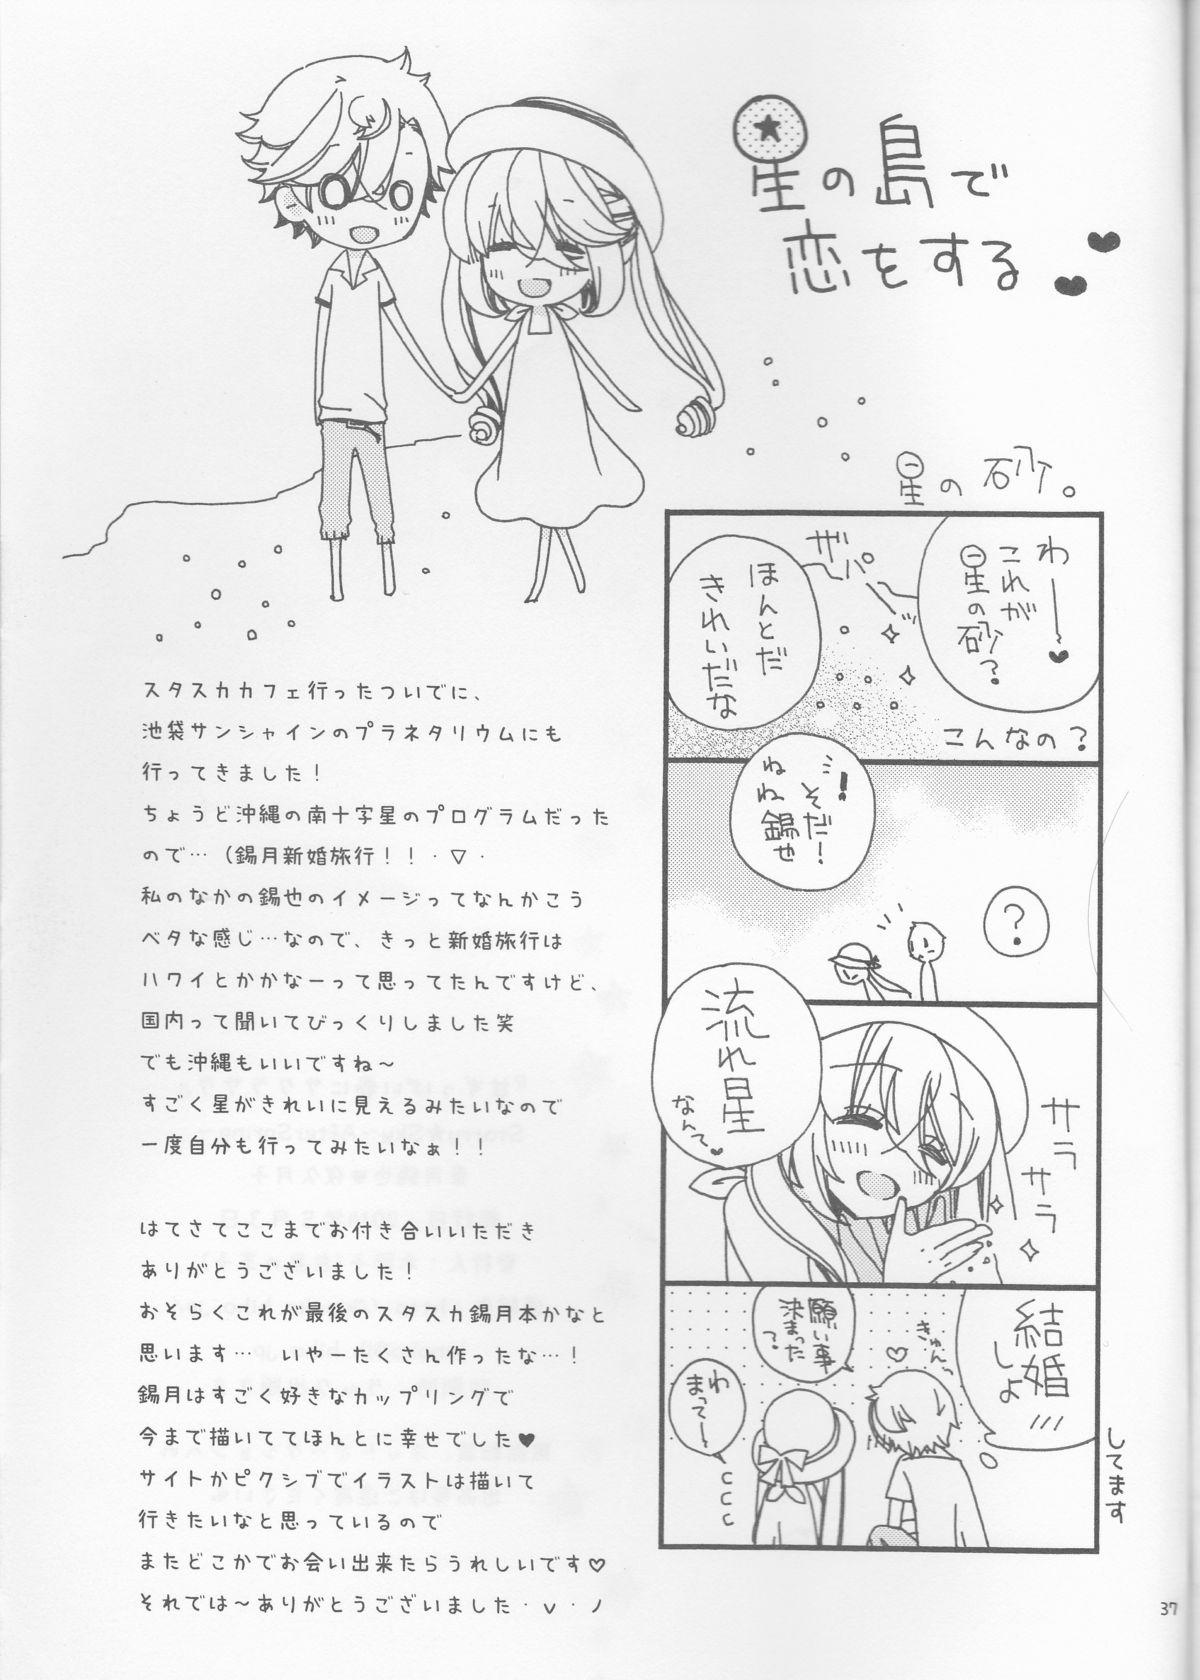 星の島で
恋をする
星の砂。
わー♥
これが
星の砂?
ザパーンッ
ほんとだ
きれいだな
こんなの?
!そだ!
ねね錫也
?
流れ星
なんて♥
サラサラ
結婚
しよ
してます
きゅん~
願い事
決まった
?
わー
まってー
スタスカカフェ行ったついでに、
池袋サンシャインのプラネタリウムにも
行ってきました!
ちょうど沖縄の南十字星のプログラムだった
ので…(錫月新婚旅行!!・▽・
私のなかの錫也のイメージってなんかこう
ベタな感じ…なので、きっと新婚旅行は
ハワイとかかなーって思ってたんですけど、
国内って聞いてびっくりしました笑
でも沖縄もいいですね~
すごく星がきれいに見えるみたいなので
一度自分も行ってみたいなぁ!!
はてさてここまでお付き合いいただき
ありがとうございました!
おそらくこれが最後のスタスカ錫月本かなと
思います… いやーたくさん作ったな…!
錫月はすごく好きなカップリングで
今まで描いててほんとに幸せでした♥
サイトかピクシブでイラストは描いて
行きたいなと思っているので
またどこかでお会い出来たらうれしいです♡
それでは~ありがとうございました・v・ノ
37